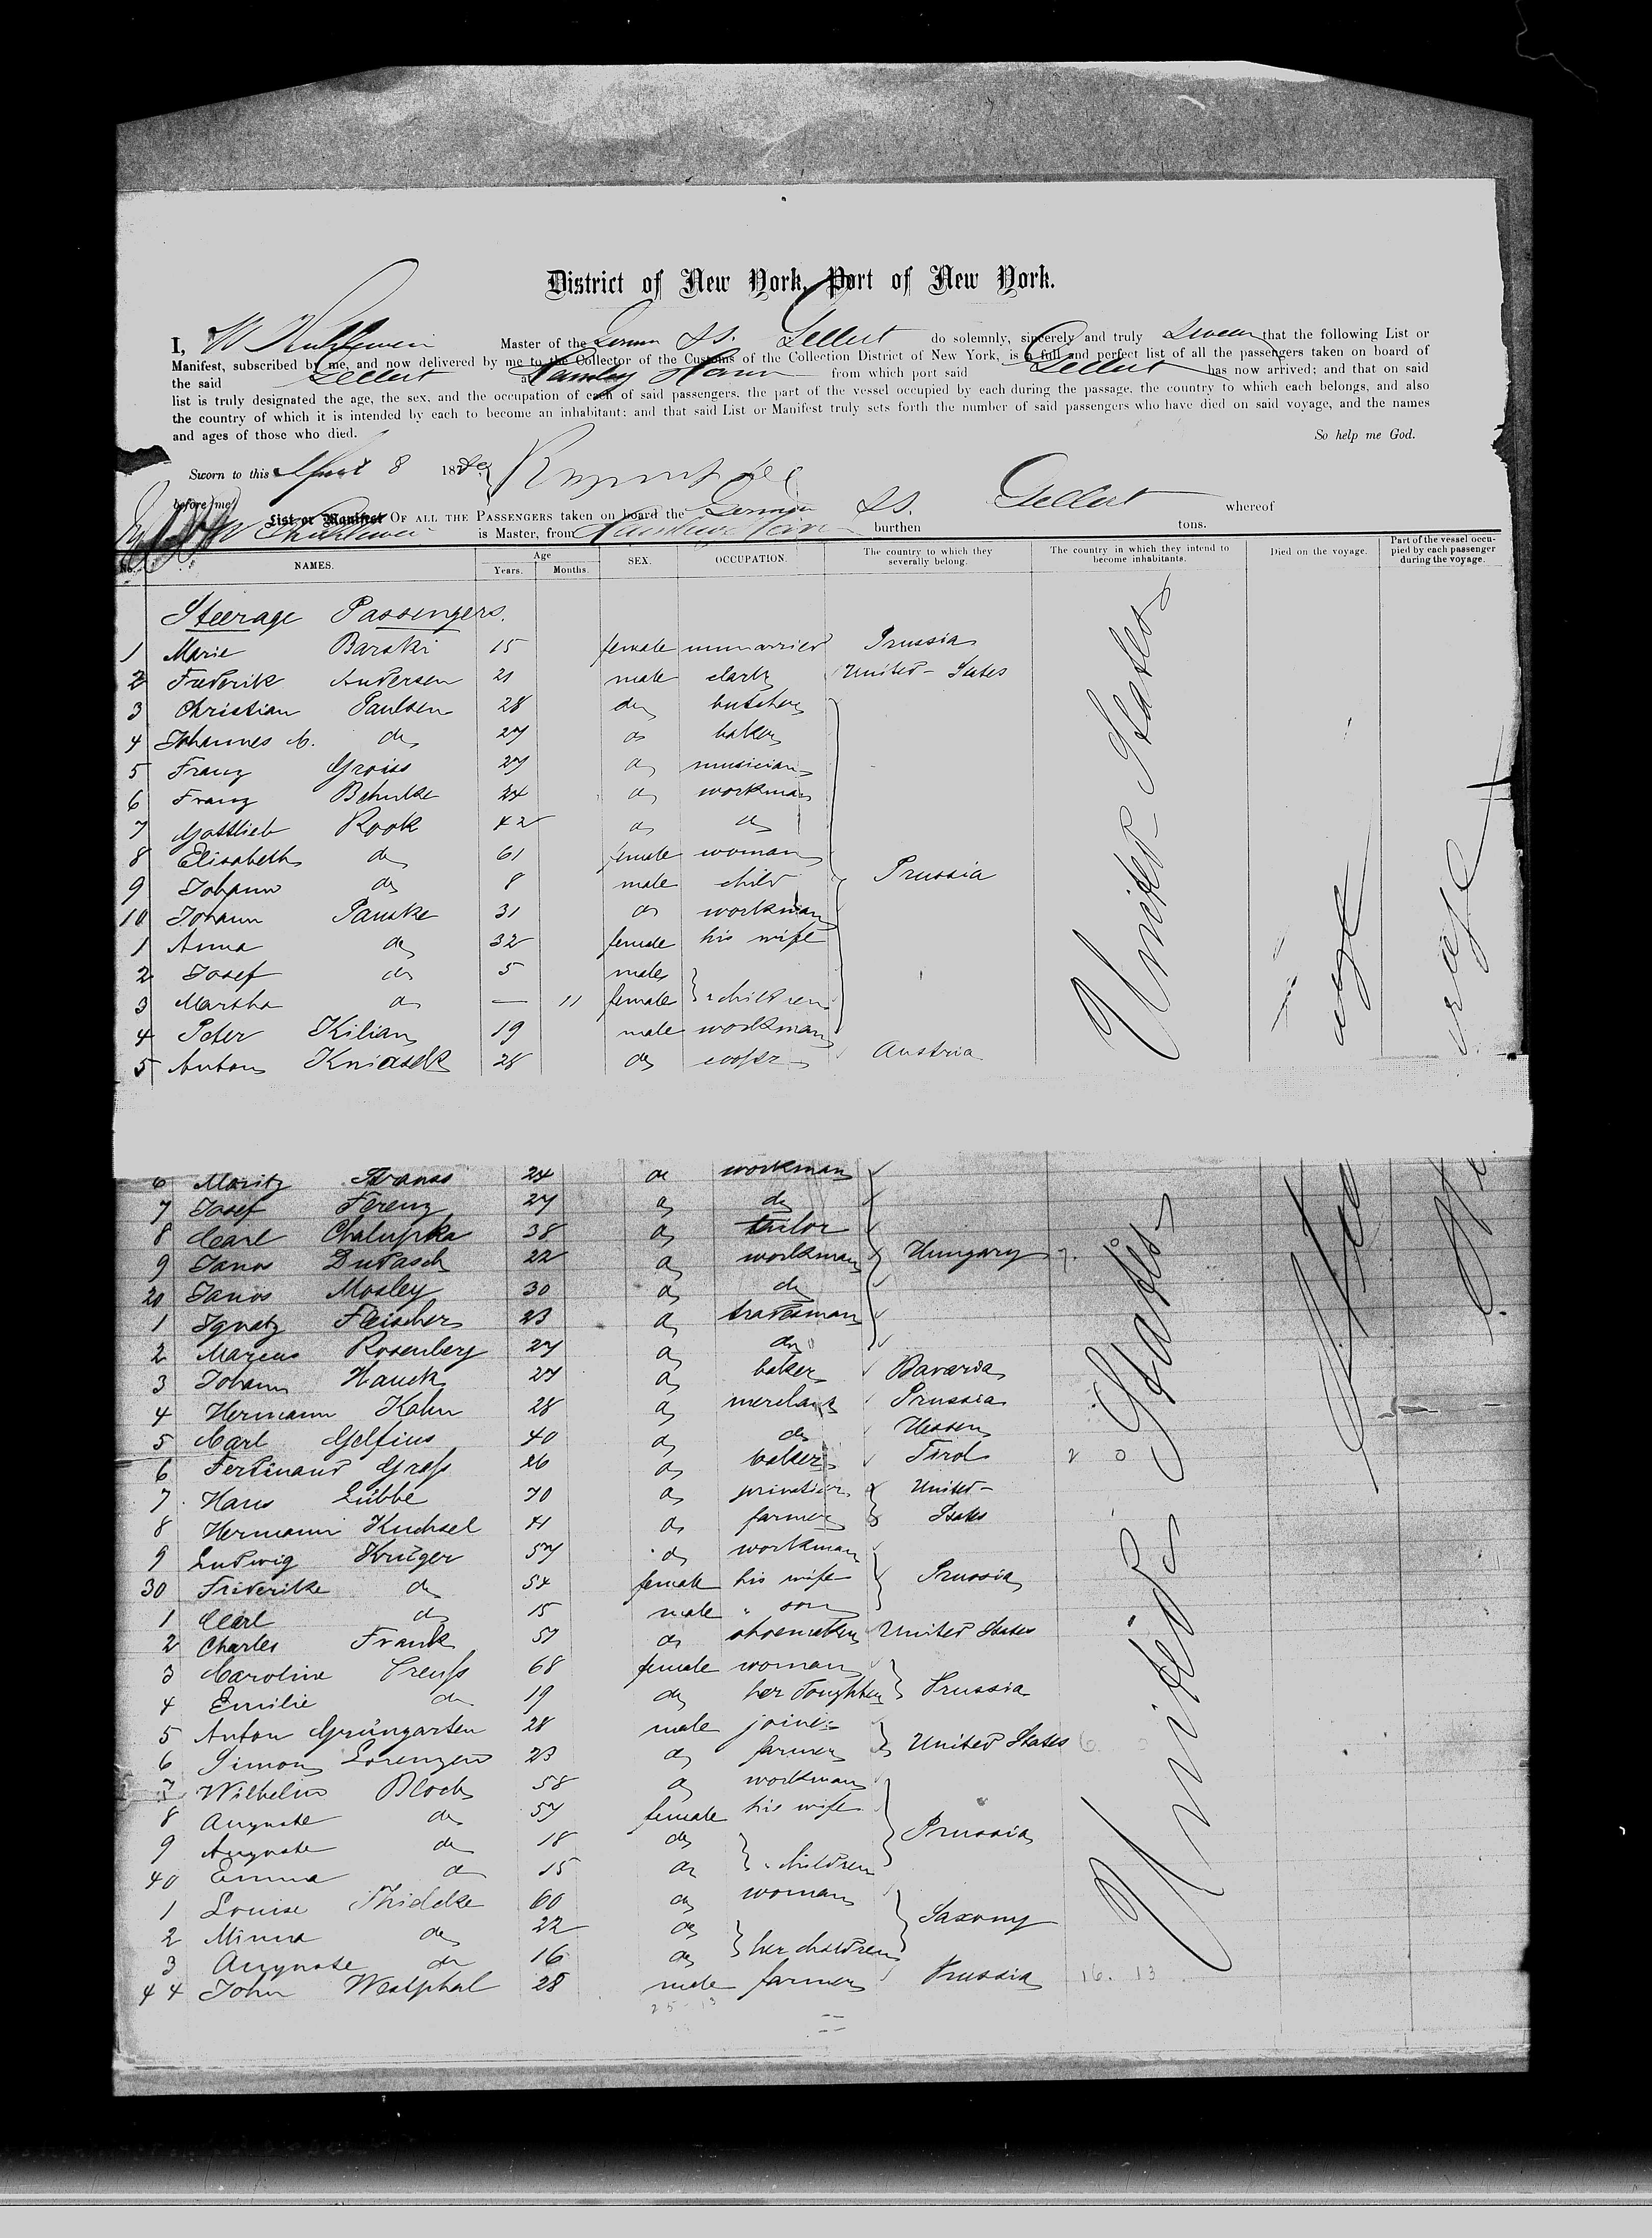 District of New York, Port of New York.
I, Master of the German SS. Gellert do solemnly, sincerely and truly swear that the following List or
Manifest, subscribed by me, and now delivered by me to the Collector of the Customs of the Collection District of New York, is a full and perfect list of all the passengers taken on board of
the said Gellert at from which port said Gellert has now arrived; and that on said
list is truly designated the age, the sex, and the occupation of each of said passengers, the part of the vessel occupied by each during the passage, the country to which each belongs, and also
the country of which it is intended by each to become an inhabitant; and that said List or Manifest truly sets forth the number of said passengers who have died on said voyage, and the names
and ages of those who died. So help me God.
Sworn to this April 8 18
before me
List or Manifest OF ALL THE PASSENGERS taken on board the German SS. Gellert whereof
is Master, from burthen tons.
No. NAMES. Age Years. Months. SEX. OCCUPATION. The country to which they severally belong. The country in which they intend to become inhabitants. Died on the voyage. Part of the vessel occupied by each passenger during the voyage.
Steerage Passengers.
1 Marie Barski 15 female unmarried Prussia
2 Frederik Andersen 21 male clerk United-States
3 Christian Paulsen 28 do butcher
4 Johannes C. do 27 do baker
5 Franz Groiss 27 do musician
6 Franz Behnke 24 do workman
7 Gottlieb Rook 42 do do
8 Elisabeth do 61 female woman
9 Johann do 8 male child Prussia
10 Johann Panske 31 do workman
1 Anna do 32 female his wife
2 Josef do 5 male
3 Martha do — 11 female " children
4 Peter Kilian 19 male workman
5 Anton Kniasek 28 do cooper Austria
United States
6 Moritz Strauss 24 do workman
7 Josef Ferenz 27 do do
8 Carl Chalupka 38 do tailor
9 Janos Dudasch 22 do workman Hungary
20 Janos Mosley 30 do do
1 Ignatz Fleischer 23 do tradesman
2 Marcus Rosenberg 27 do do
3 Johann Hauck 27 do baker Bavaria
4 Hermann Kahn 28 do merchant Prussia
5 Carl Gelfius 40 do do Hessen
6 Ferdinand Gross 26 do baker Tirol
7 Hans Lübbe 70 do privatier United-
8 Hermann Kuchsel 41 do farmer States
9 Ludwig Krüger 57 do workman
30 Friderike do 54 female his wife Prussia
1 Carl do 15 male " son
2 Charles Frank 57 do shoemaker United States
3 Caroline Preuss 68 female woman
4 Emilie do 19 do her daughter Prussia
5 Anton Grüngarten 28 male joiner
6 Simon Lorenzen 23 do farmer United States
7 Wilhelm Block 58 do workman
8 Auguste do 57 female his wife
9 Auguste do 18 do Prussia
40 Emma do 15 do " children
1 Louise Thielcke 60 do woman
2 Minna do 22 do Saxony
3 Auguste do 16 do her children
44 John Westphal 28 male farmer Prussia 16. 13
25-13
United States